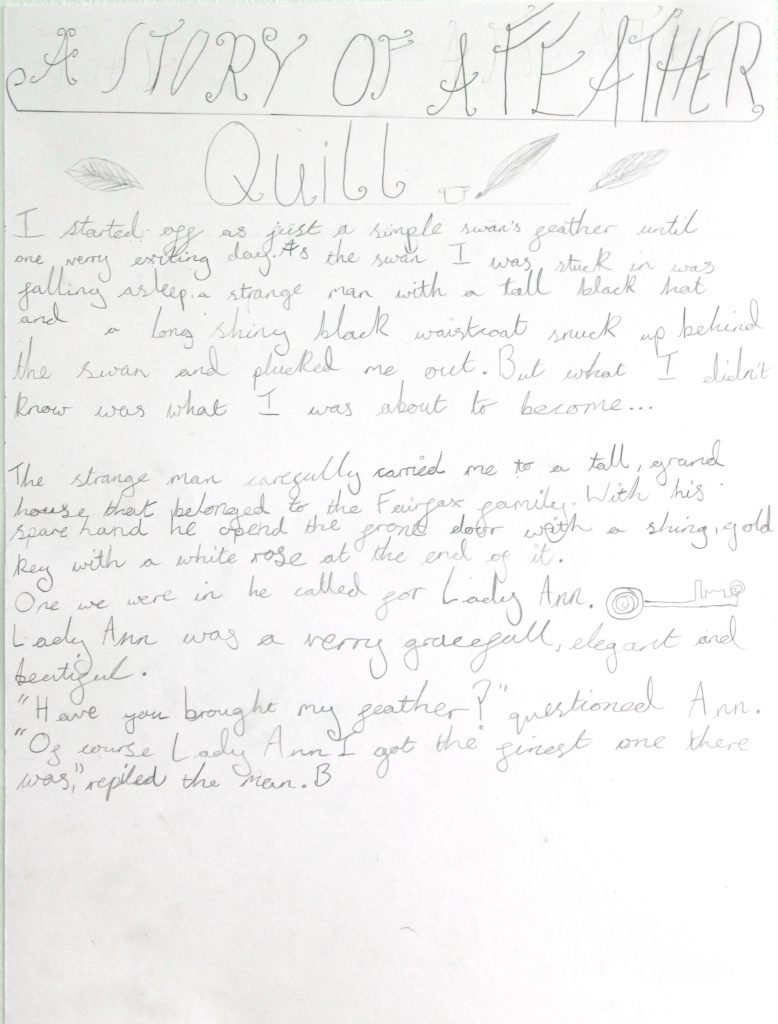 A STORY OF A FEATHER
Quill
I started off as just a simple swan's feather until
one verry exiting day. As the swan I was stuck in was
falling asleep a strange man with a tall black hat
and a long shiny black waistcoat snuck up behind
the swan and plucked me out. But what I didn't
know was what I was about to become...
The strange man carefully carried me to a tall, grand
house that belonged to the Fairfax family. With his
spare hand he opend the front door with a shiny, gold
key with a white rose at the end of it.
One we were in he called for Lady Ann.
Lady Ann was a verry gracefull, elegant and
beatiful.
"Have you brought my feather?" questioned Ann.
"Of course Lady Ann I got the finest one there
was," replied the man. B